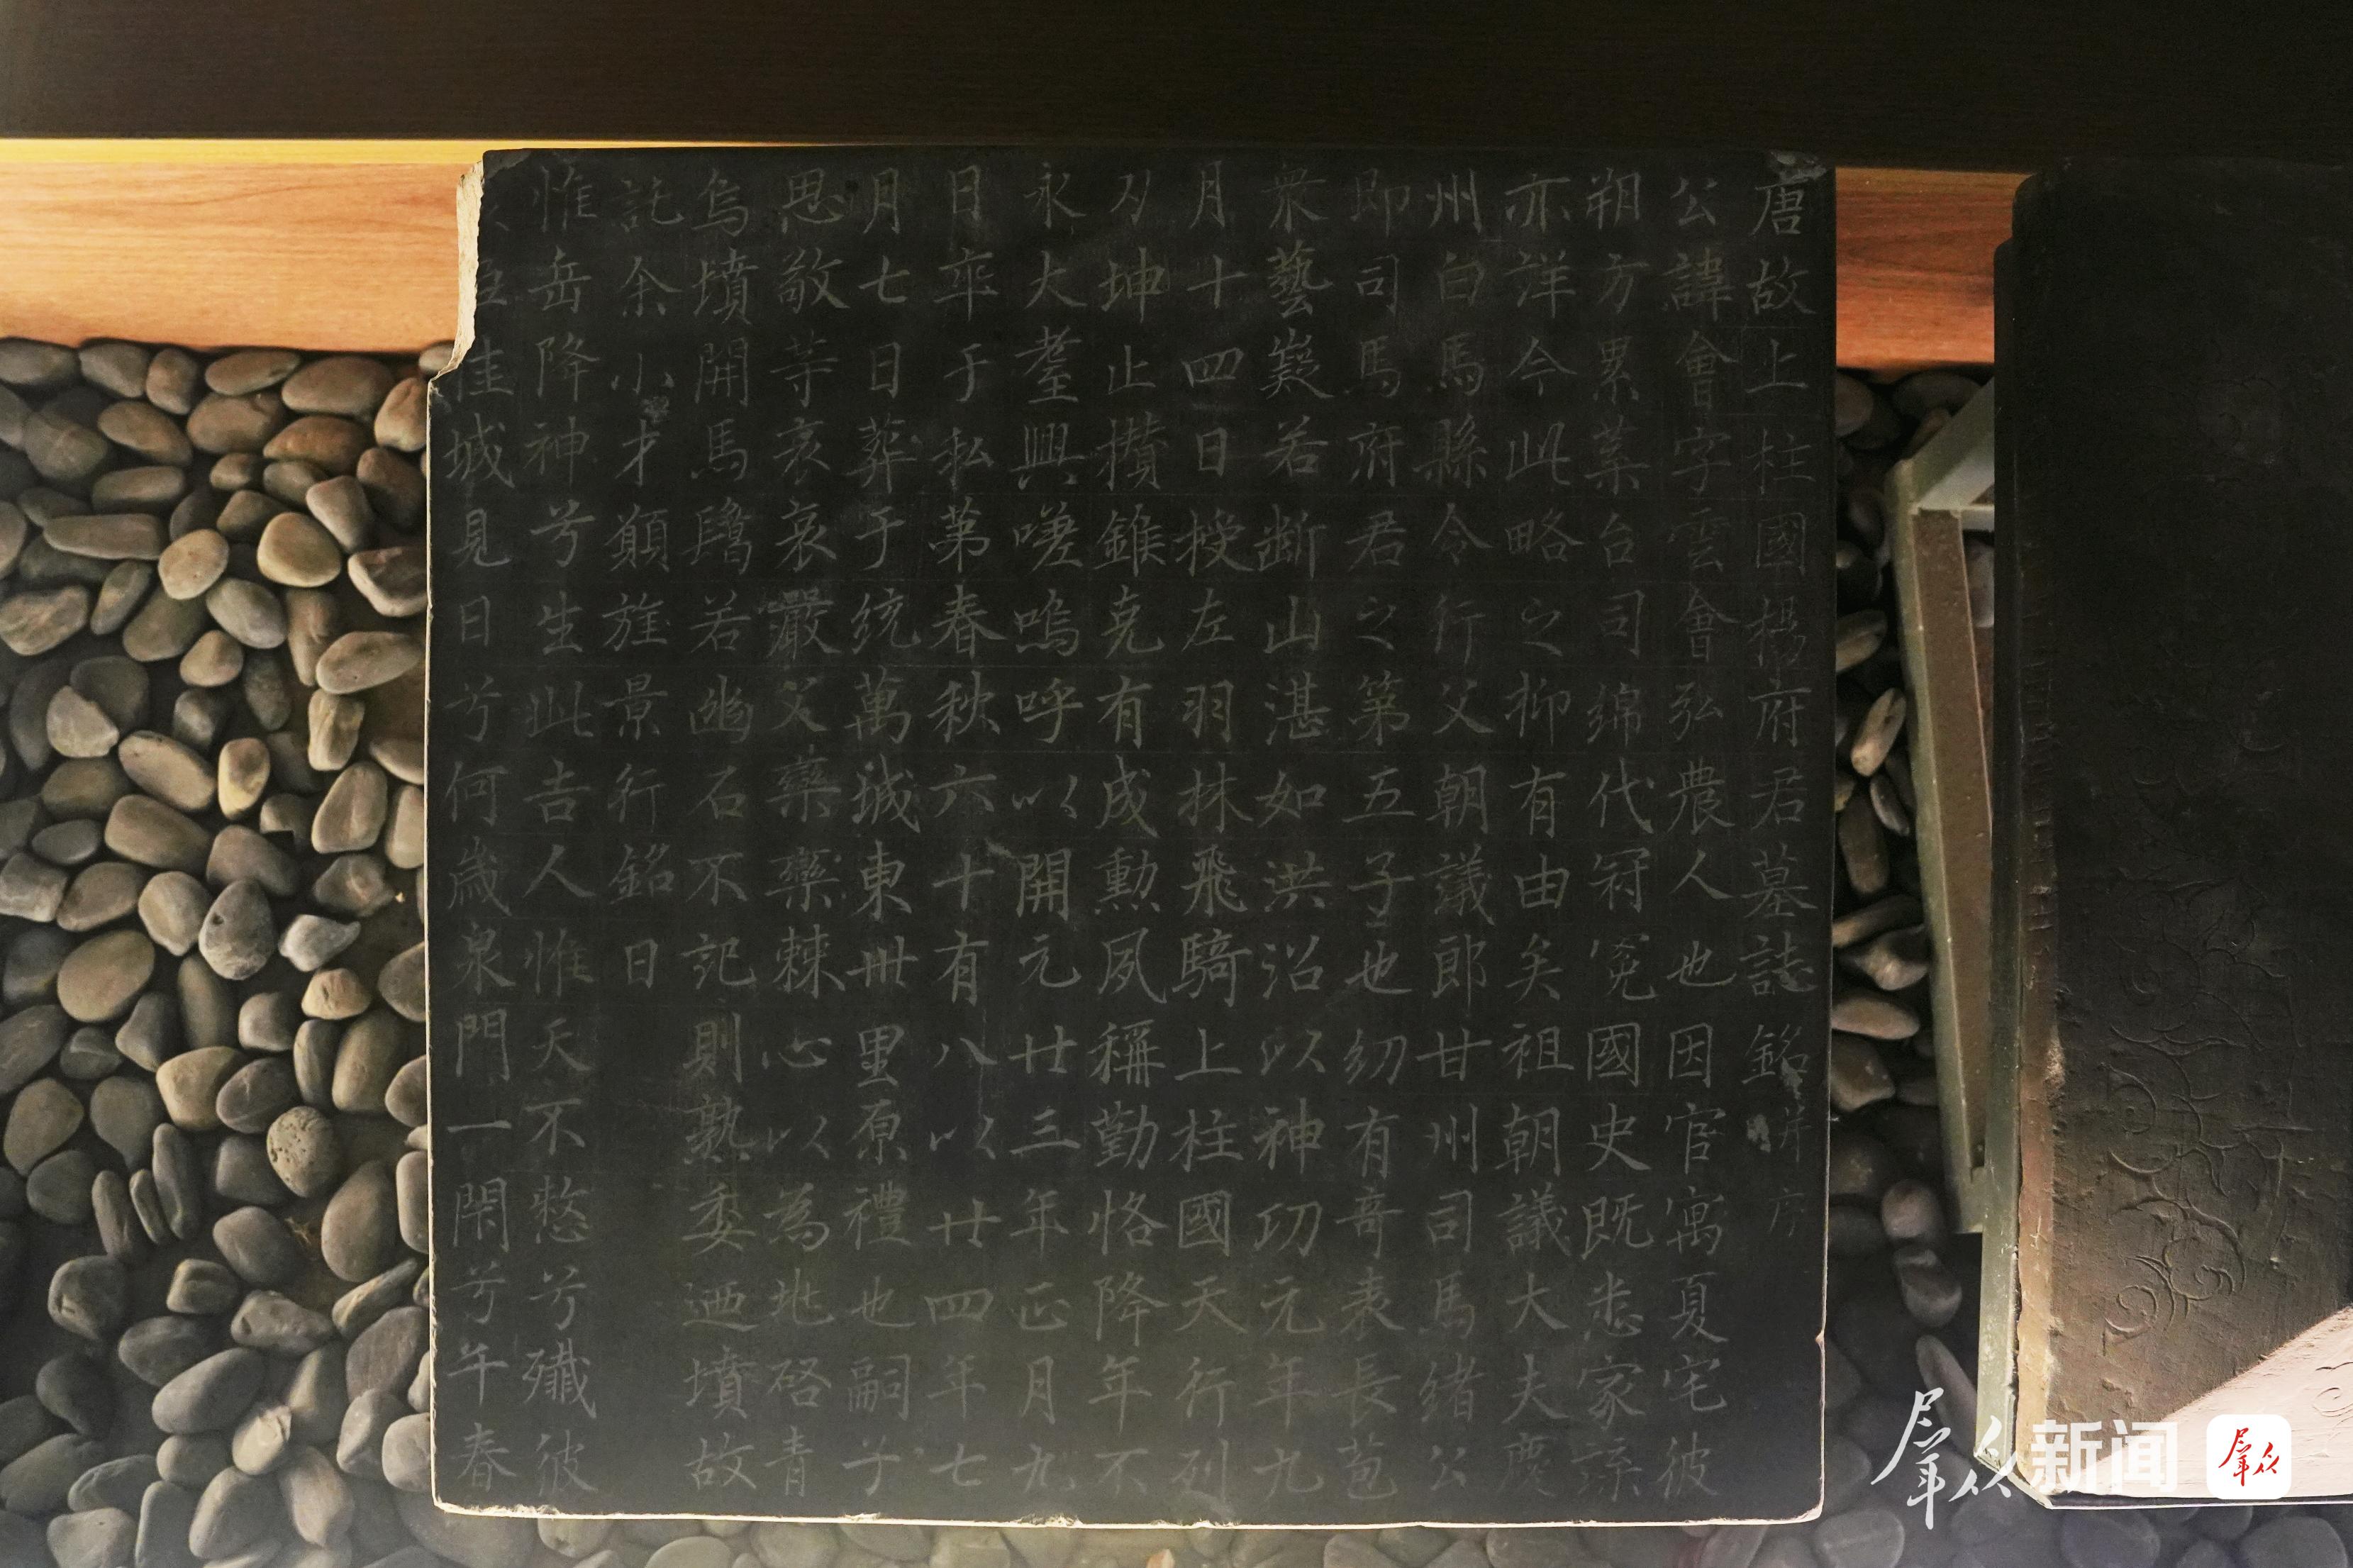 唐故上柱國楊府君墓誌銘并序
公諱會字雲會弘農人也因官寓夏宅彼
朔方累葉台司綿代冠冕國史既悉家諜
亦詳今此略之抑有由矣祖朝議大夫慶
州白馬縣令行父朝議郎甘州司馬緒公
即司馬府君之第五子也幼有奇表長苞
眾藝嶷若斷山湛如洪沼以神功元年九
月十四日授左羽林飛騎上柱國天行列
乃坤止攢錐克有成勳夙稱勤恪降年不
永大耋興嗟嗚呼以開元廿三年正月九
日卒于私第春秋六十有八以廿四年七
月七日葬于統萬城東卅里原禮也嗣子
思敬等哀哀嚴父欒欒棘心以為兆啓青
烏墳開馬鬣若幽石不記則孰委迺墳故
託余小才顛旌景行銘曰
惟岳降神兮生此吉人惟天不憗兮殲彼
佳城見日兮何歲泉門一閇兮千春
群众新闻
群众